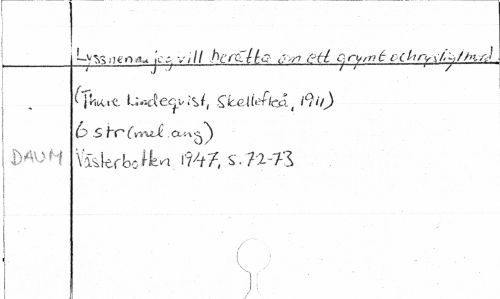 Lyssnen nu jag vill berätta om ett grymt och rysligt mord.
(Thure Lindeqvist, Skellefteå, 1911)
6 str (mel. ang)
DAUM Västerbotten 1947, s. 72-73